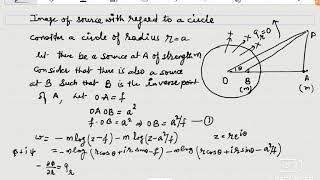 Image of source with regard to a circle
Consider a circle of radius r=a
let there be a source at A of strength m
Consider that there is also a source
at B such that B is the inverse point
of A, let OA=f
OA OB=a²
f·OB=a² ⇒ OB=a²/f —①
w=-m log(z-f)-m log(z-a²/f)   z=re^iθ
ϕ+iψ=-m log(rcosθ+irsinθ-f)-m log(rcosθ+irsinθ-a²/f)
-∂ϕ/∂r=q_r
q_r=0
P
O
θ
B
(m)
A
(m)